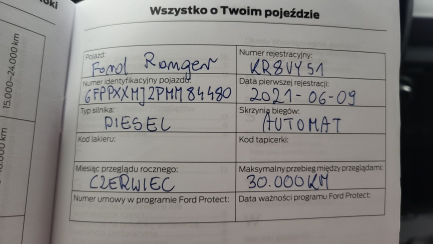 Wszystko o Twoim pojeździe
15.000–24.000 km
Pojazd:
Ford Ranger
Numer rejestracyjny:
KR8VY51
Numer identyfikacyjny pojazdu:
6FPPXXMJ2PMM84480
Data pierwszej rejestracji:
2021-06-09
Typ silnika:
DIESEL
Skrzynia biegów:
AUTOMAT
Kod lakieru:
Kod tapicerki:
Miesiąc przeglądu rocznego:
CZERWIEC
Maksymalny przebieg między przeglądami:
30.000KM
Numer umowy w programie Ford Protect:
Data ważności programu Ford Protect: